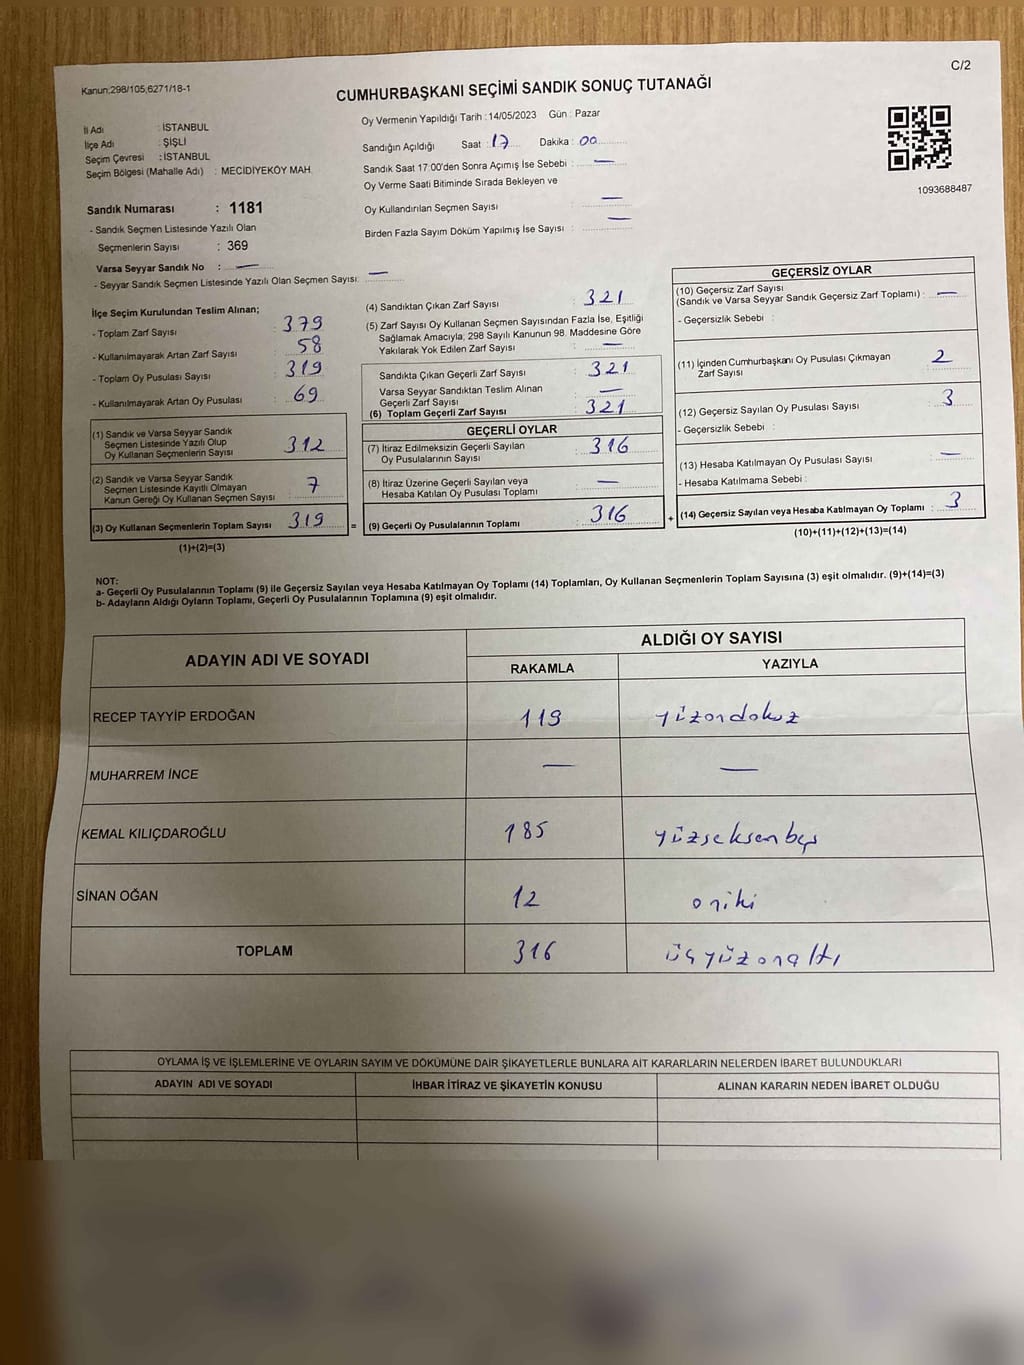 C/2
Kanun;298/105,6271/18-1
CUMHURBAŞKANI SEÇİMİ SANDIK SONUÇ TUTANAĞI
İl Adı : İSTANBUL
İlçe Adı : ŞİŞLİ
Seçim Çevresi : İSTANBUL
Seçim Bölgesi (Mahalle Adı) : MECİDİYEKÖY MAH.
Oy Vermenin Yapıldığı Tarih : 14/05/2023 Gün : Pazar
Sandığın Açıldığı Saat : 17 Dakika : 00
Sandık Saat 17:00'den Sonra Açımış İse Sebebi : —
Oy Verme Saati Bitiminde Sırada Bekleyen ve
Oy Kullandırılan Seçmen Sayısı : —
Birden Fazla Sayım Döküm Yapılmış İse Sayısı : —
1093688487
Sandık Numarası : 1181
- Sandık Seçmen Listesinde Yazılı Olan
Seçmenlerin Sayısı : 369
Varsa Seyyar Sandık No : —
- Seyyar Sandık Seçmen Listesinde Yazılı Olan Seçmen Sayısı: —
İlçe Seçim Kurulundan Teslim Alınan;
- Toplam Zarf Sayısı : 379
- Kullanılmayarak Artan Zarf Sayısı : 58
- Toplam Oy Pusulası Sayısı : 319
- Kullanılmayarak Artan Oy Pusulası : 69
(1) Sandık ve Varsa Seyyar Sandık
Seçmen Listesinde Yazılı Olup
Oy Kullanan Seçmenlerin Sayısı : 312
(2) Sandık ve Varsa Seyyar Sandık
Seçmen Listesinde Kayıtlı Olmayan
Kanun Gereği Oy Kullanan Seçmen Sayısı : 7
(3) Oy Kullanan Seçmenlerin Toplam Sayısı : 319 =
(1)+(2)=(3)
(4) Sandıktan Çıkan Zarf Sayısı : 321
(5) Zarf Sayısı Oy Kullanan Seçmen Sayısından Fazla İse, Eşitliği
Sağlamak Amacıyla, 298 Sayılı Kanunun 98. Maddesine Göre
Yakılarak Yok Edilen Zarf Sayısı : —
Sandıkta Çıkan Geçerli Zarf Sayısı : 321
Varsa Seyyar Sandıktan Teslim Alınan
Geçerli Zarf Sayısı : —
(6) Toplam Geçerli Zarf Sayısı : 321
GEÇERLİ OYLAR
(7) İtiraz Edilmeksizin Geçerli Sayılan
Oy Pusulalarının Sayısı : 316
(8) İtiraz Üzerine Geçerli Sayılan veya
Hesaba Katılan Oy Pusulası Toplamı : —
(9) Geçerli Oy Pusulalarının Toplamı : 316 +
GEÇERSİZ OYLAR
(10) Geçersiz Zarf Sayısı
(Sandık ve Varsa Seyyar Sandık Geçersiz Zarf Toplamı) : —
- Geçersizlik Sebebi :
(11) İçinden Cumhurbaşkanı Oy Pusulası Çıkmayan
Zarf Sayısı : 2
(12) Geçersiz Sayılan Oy Pusulası Sayısı : 3
- Geçersizlik Sebebi :
(13) Hesaba Katılmayan Oy Pusulası Sayısı : —
- Hesaba Katılmama Sebebi :
(14) Geçersiz Sayılan veya Hesaba Katılmayan Oy Toplamı : 3
(10)+(11)+(12)+(13)=(14)
NOT:
a- Geçerli Oy Pusulalarının Toplamı (9) ile Geçersiz Sayılan veya Hesaba Katılmayan Oy Toplamı (14) Toplamları, Oy Kullanan Seçmenlerin Toplam Sayısına (3) eşit olmalıdır. (9)+(14)=(3)
b- Adayların Aldığı Oyların Toplamı, Geçerli Oy Pusulalarının Toplamına (9) eşit olmalıdır.
ADAYIN ADI VE SOYADI ALDIĞI OY SAYISI
RAKAMLA YAZIYLA
RECEP TAYYİP ERDOĞAN 119 yüzondokuz
MUHARREM İNCE — —
KEMAL KILIÇDAROĞLU 185 yüzseksenbeş
SİNAN OĞAN 12 oniki
TOPLAM 316 üçyüzonaltı
OYLAMA İŞ VE İŞLEMLERİNE VE OYLARIN SAYIM VE DÖKÜMÜNE DAİR ŞİKAYETLERLE BUNLARA AİT KARARLARIN NELERDEN İBARET BULUNDUKLARI
ADAYIN ADI VE SOYADI İHBAR İTİRAZ VE ŞİKAYETİN KONUSU ALINAN KARARIN NEDEN İBARET OLDUĞU